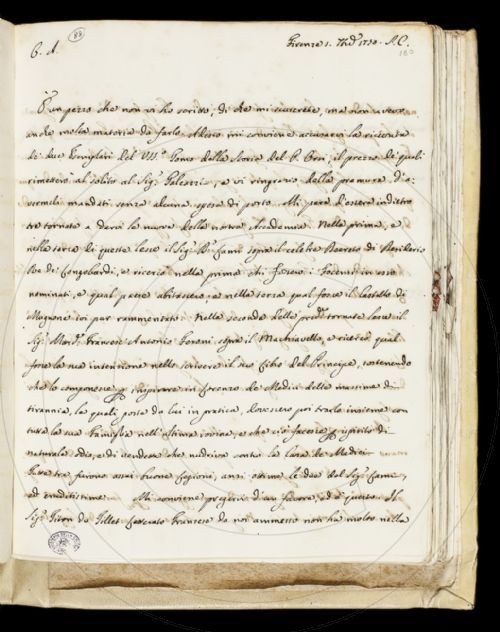 C. A.
88
Firenze 1. Xbre 1750. A. C.
180
È un pezzo che non vi ho scritto, di che mi scuserete, ma non aveva
anche molta materia da farlo. Adesso mi conviene accusarvi la ricevuta
di due Esemplari del VII.º Tomo della Storia del P. Orsi, il prezzo de quali
rimetterò al solito al Sig.r e vi ringrazio della premura d'a-
vermeli mandati senza alcuna spesa di porto. Mi pare d'essere indietro
tre tornate a darvi la nuova della nostra Accademia. Nella prima, e
nella terza di queste lesse il Sig.r sopra il celebre Decreto di Desiderio
Re de Longobardi, e ricercò nella prima chi fossero i ivi
nominati, e qual paese abitassero, e nella terza qual fosse il Castello di
ivi pur rammentato. Nella seconda delle pred.e tornate lesse il
Sig.r Francesc' Antonio sopra il Machiavello, e ricercò qual
fosse la sua intenzione nello scrivere il suo libro del Principe, sostenendo
che lo componesse p inspirare in Lorenzo de Medici delle massime di
tirannia, le quali poste da lui in pratica, dovessero poi trarlo insieme con
tutta la sua Famiglia nell'ultima rovina, e che ciò facesse p ispirito di
naturale odio, e di vendetta che nudriva contro la Casa de Medici.
Tutte tre furono assai buone lezioni, anzi ottime le due del Sig.r
ed eruditissime. Mi conviene pregarvi d'un favore, ed è questo. Il
Sig.r Franzese da noi ammesso non ha molto nella